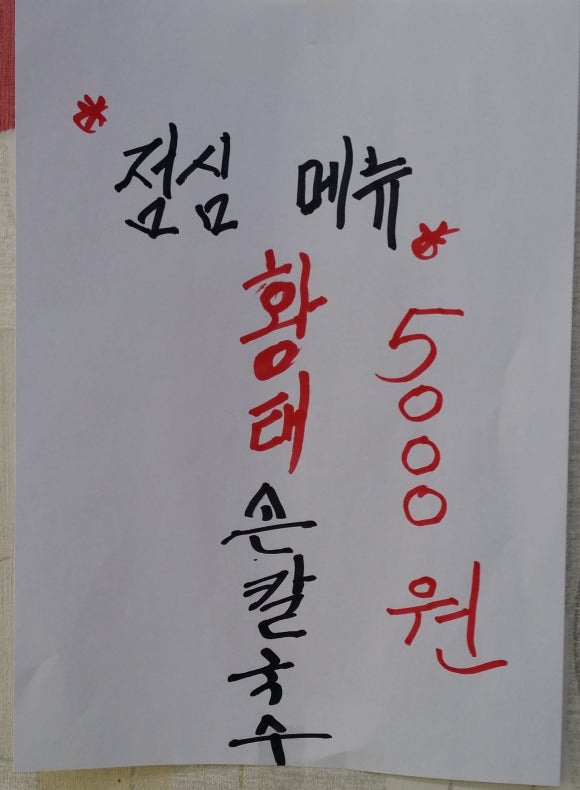 * 점심 메뉴 *
황태손칼국수
5000원